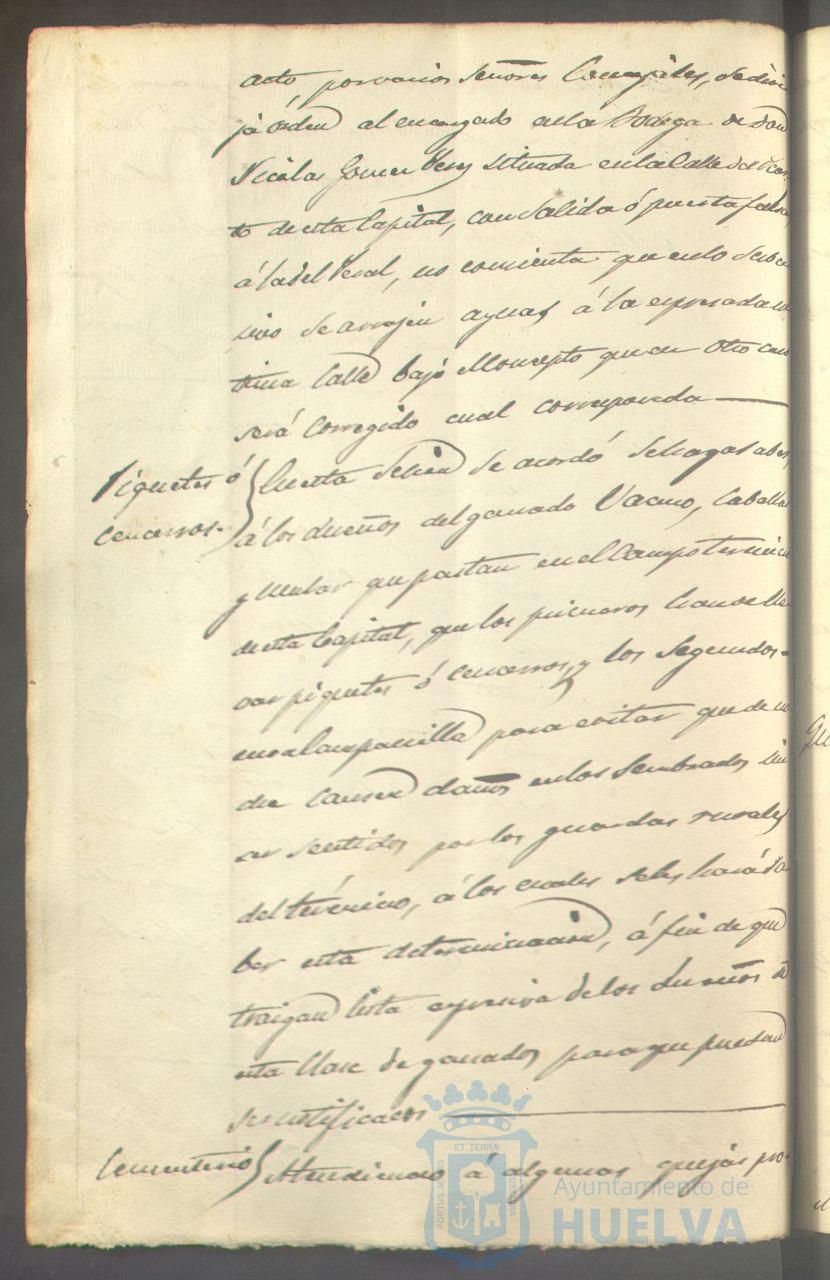 acto, por varios Señores Concejales, se diri
ja órden al encargado en la Bodega de Don
Nicolas Gomez situada en la Calle del
to de esta Capital, con salida ó puesta falsa
á la del Peral, no consienta que en lo sucec
sivo se arrojen aguas á la espresada ul
tima Calle bajo el concepto que en otro caso
será corregido cual corresponda
Piquetes ó
Cencerros.
Cuesta se acordó se haga saber
á los dueños del ganado Vacuno, Caballar
y mular que pastan en el Campo término
de esta Capital, que los primeros han de lle
var piquetes ó cencerros, y los segundos
una Campanilla para evitar que de no
che causen daños en los sembrados sin
ser sentidos por los guardas rurales
del término, á los cuales se les hará sa
ber esta determinacion, á fin de que
traigan lista espresiva de los dueños de
esta Clase de ganados para que puedan
ser notificados
Cementerio
Atendiendo á algunas quejas pro-
PORTUS MARIS ET TERRAE CUSTODIA
Ayuntamiento de
HUELVA